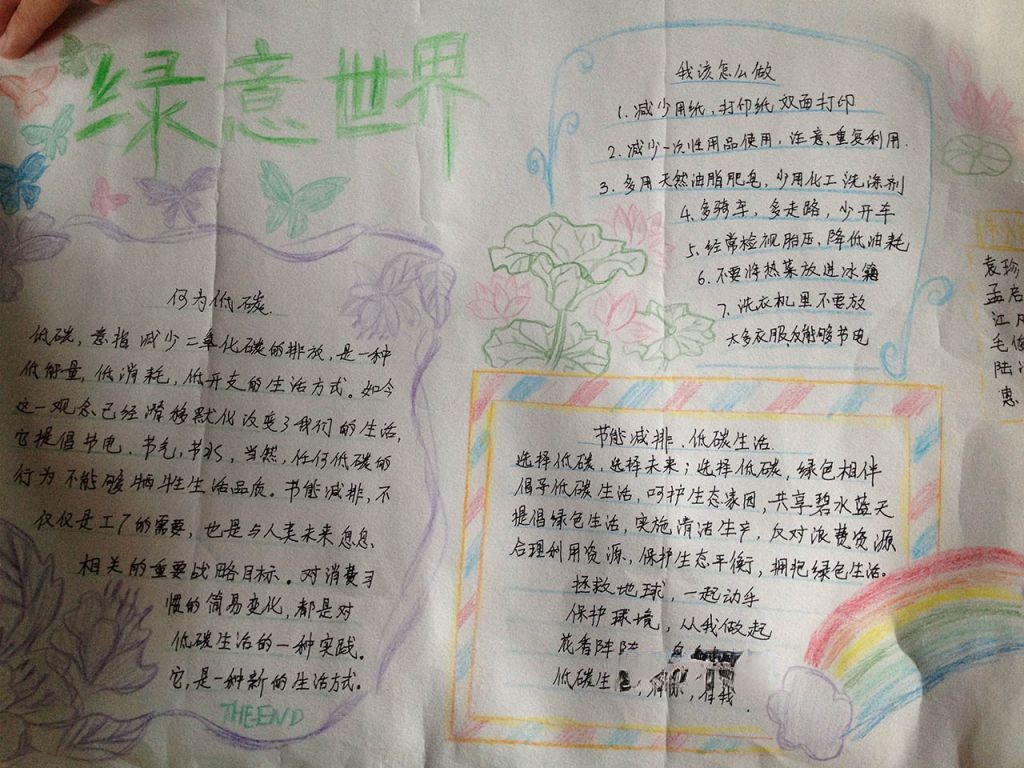 绿意世界
何为低碳
低碳，意指减少二氧化碳的排放，是一种
低能量，低消耗，低开支的生活方式。如今
这一观念已经潜移默化改变了我们的生活，
它提倡节电、节气，节水，当然，任何低碳的
行为不能够牺牲生活品质。节能减排，不
仅仅是工厂的需要，也是与人类未来息息、
相关的重要战略目标。对消费习
惯的简易变化，都是对
低碳生活的一种实践。
它，是一种新的生活方式。
THE END
我该怎么做
1. 减少用纸，打印纸双面打印
2. 减少一次性用品使用，注意重复利用.
3. 多用天然油脂肥皂，少用化工洗涤剂
4. 多骑车，多走路，少开车
5. 经常检视胎压，降低油耗
6. 不要将热菜放进冰箱
7. 洗衣机里不要放
太多衣服，能够节电
节能减排、低碳生活.
选择低碳，选择未来；选择低碳，绿色相伴
倡导低碳生活，呵护生态家园，共享碧水蓝天
提倡绿色生活，实施清洁生产，反对浪费资源
合理利用资源，保护生态平衡，拥抱绿色生活。
拯救地球，一起动手
保护环境，从我做起
花香阵阵
低碳生
袁珍
孟
江
毛
陆
惠